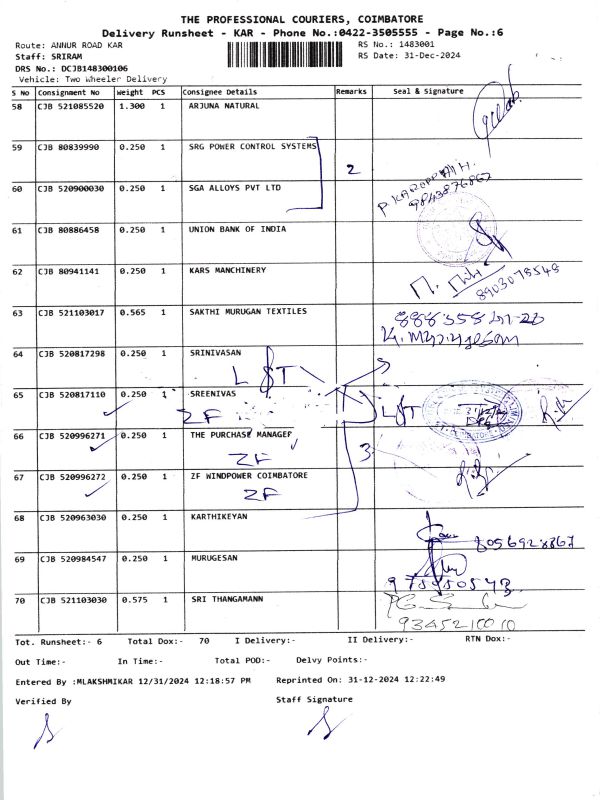 THE PROFESSIONAL COURIERS, COIMBATORE
Delivery Runsheet - KAR - Phone No.:0422-3505555 - Page No.:6
Route: ANNUR ROAD KAR RS No.: 1483001
Staff: SRIRAM RS Date: 31-Dec-2024
DRS No.: DCJB148300106
Vehicle: Two Wheeler Delivery
S No Consignment No Weight PCS Consignee Details Remarks Seal & Signature
58 CJB 521085520 1.300 1 ARJUNA NATURAL
59 CJB 80839990 0.250 1 SRG POWER CONTROL SYSTEMS
2
60 CJB 520900030 0.250 1 SGA ALLOYS PVT LTD
9843876867
61 CJB 80886458 0.250 1 UNION BANK OF INDIA
62 CJB 80941141 0.250 1 KARS MANCHINERY
8903079548
63 CJB 521103017 0.565 1 SAKTHI MURUGAN TEXTILES
64 CJB 520817298 0.250 1 SRINIVASAN
LST
65 CJB 520817110 0.250 1 SREENIVAS
ZF LST
66 CJB 520996271 0.250 1 THE PURCHASE MANAGER
ZF 3
67 CJB 520996272 0.250 1 ZF WINDPOWER COIMBATORE
ZF
68 CJB 520963030 0.250 1 KARTHIKEYAN
8056928867
69 CJB 520984547 0.250 1 MURUGESAN
70 CJB 521103030 0.575 1 SRI THANGAMANN
9345210010
Tot. Runsheet:- 6 Total Dox:- 70 I Delivery:- II Delivery:- RTN Dox:-
Out Time:- In Time:- Total POD:- Delvy Points:-
Entered By :MLAKSHMIKAR 12/31/2024 12:18:57 PM Reprinted On: 31-12-2024 12:22:49
Verified By Staff Signature